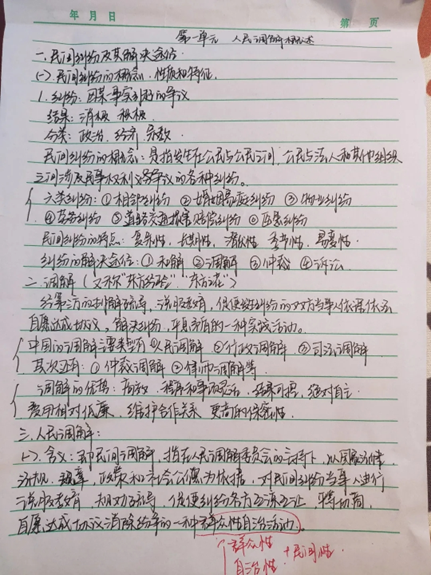 年 月 日
第 页
第一单元 人民调解概述
一、民间纠纷及其解决途径
(一) 民间纠纷的概念、性质和特征
1. 纠纷：因某事实引起的争议
结果：消极 积极
分类：政治 经济 宗教
民间纠纷的概念：是指发生在公民与公民之间、公民与法人和其他组织
之间涉及民事权利义务争议的各种纠纷。
六类纠纷：①相邻纠纷 ②婚姻家庭纠纷 ③物业纠纷
④劳务纠纷 ⑤道路交通损害赔偿纠纷 ⑥医患纠纷
民间纠纷的特点：复杂性 长期性 潜伏性 季节性 易变性
纠纷的解决途径：①和解 ②调解 ③仲裁 ④诉讼
二、调解（又称“东方经验”“东方之花”）
纷争 方的 解 疏导，说服教育，促使纠纷的双方当事人依法
自愿达成协议，解决纠纷，平息矛盾的一种实践活动。
中国的调解主要类型 ①人民调解 ②行政调解 ③司法调解
其次还有：①仲裁调解 ②律师调解等
调解的优势：高效 程序和事灵活 结果可控，绝对自主
费用相对低廉，维护合作关系 更高的保密性。
三、人民调解：
(一) 含义：即民间调解，指在人民调解委员会的主持下，以国家法律、
法规、规章、政策和社会公德为依据，对民间纠纷当事人进行
说服教育，规劝疏导，促使纠纷各方互谅互让，平等协商，
自愿达成协议消除纷争的一种群众性自治活动。
群众性
自治性
+民间性